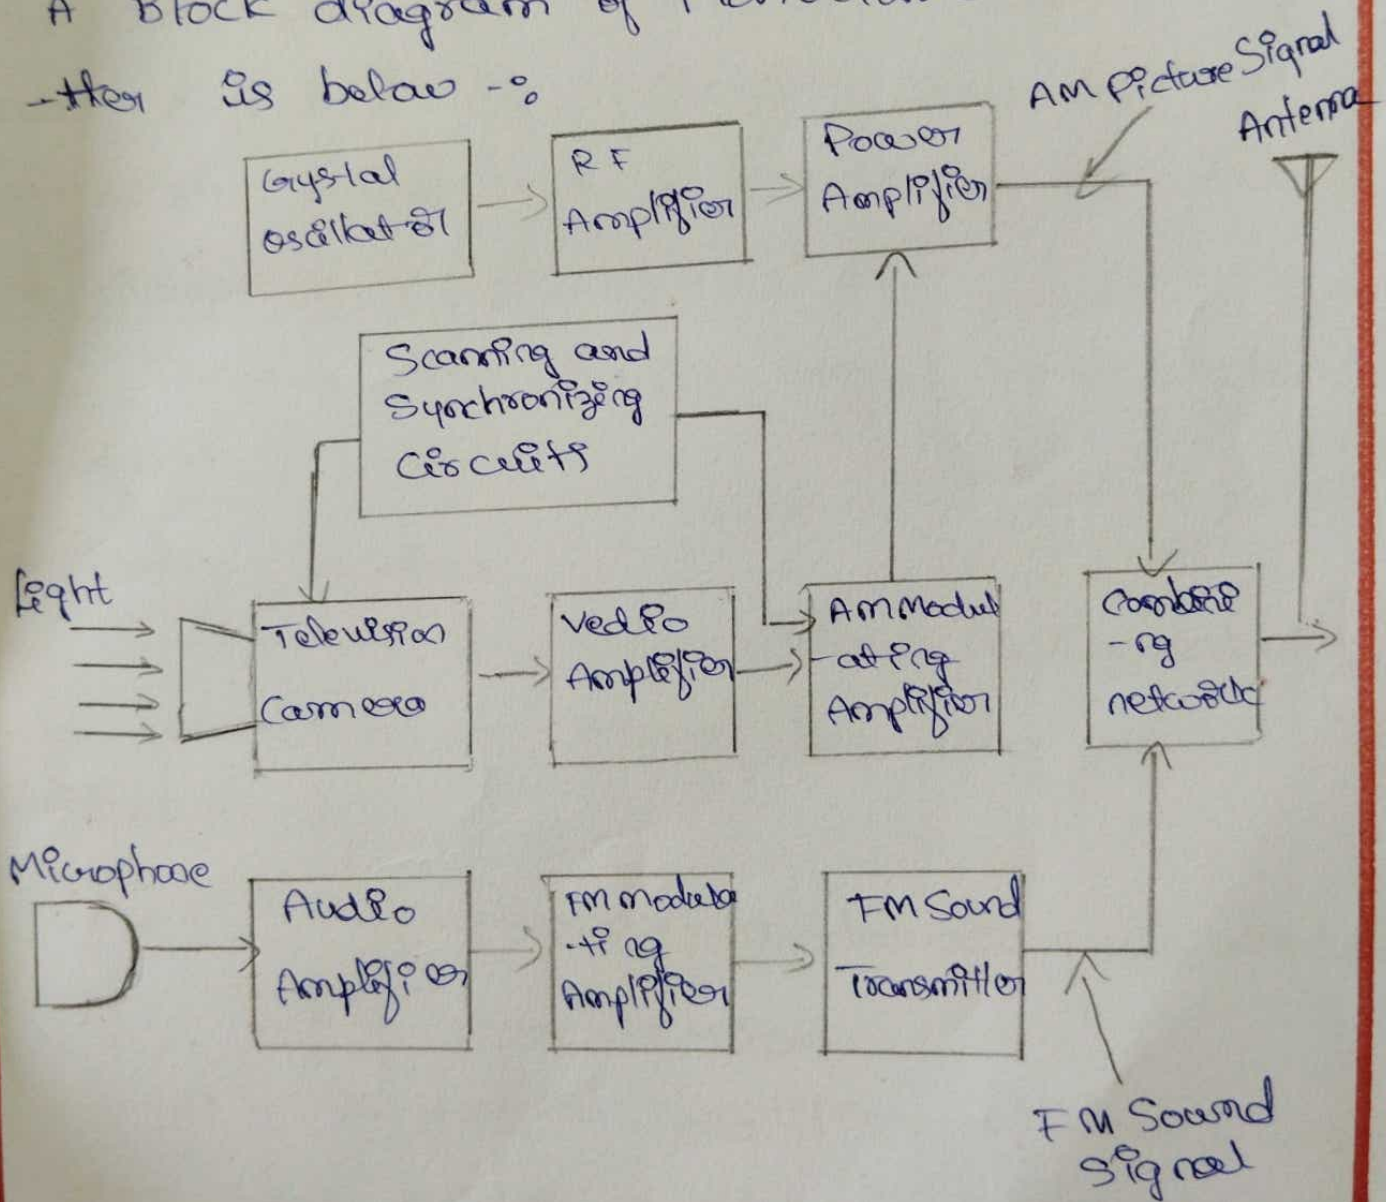 A Block diagram of
-tter is below -:
AM Picture Signal
Antenna
Crystal
oscillator
RF
Amplifier
Power
Amplifier
Scanning and
Synchronizing
Circuits
Light
Television
Camera
Vedio
Amplifier
AM Modul
-ating
Amplifier
Combini
-ng
network
Microphone
Audio
Amplifier
FM Modula
-ting
Amplifier
FM Sound
Transmitter
FM Sound
Signal